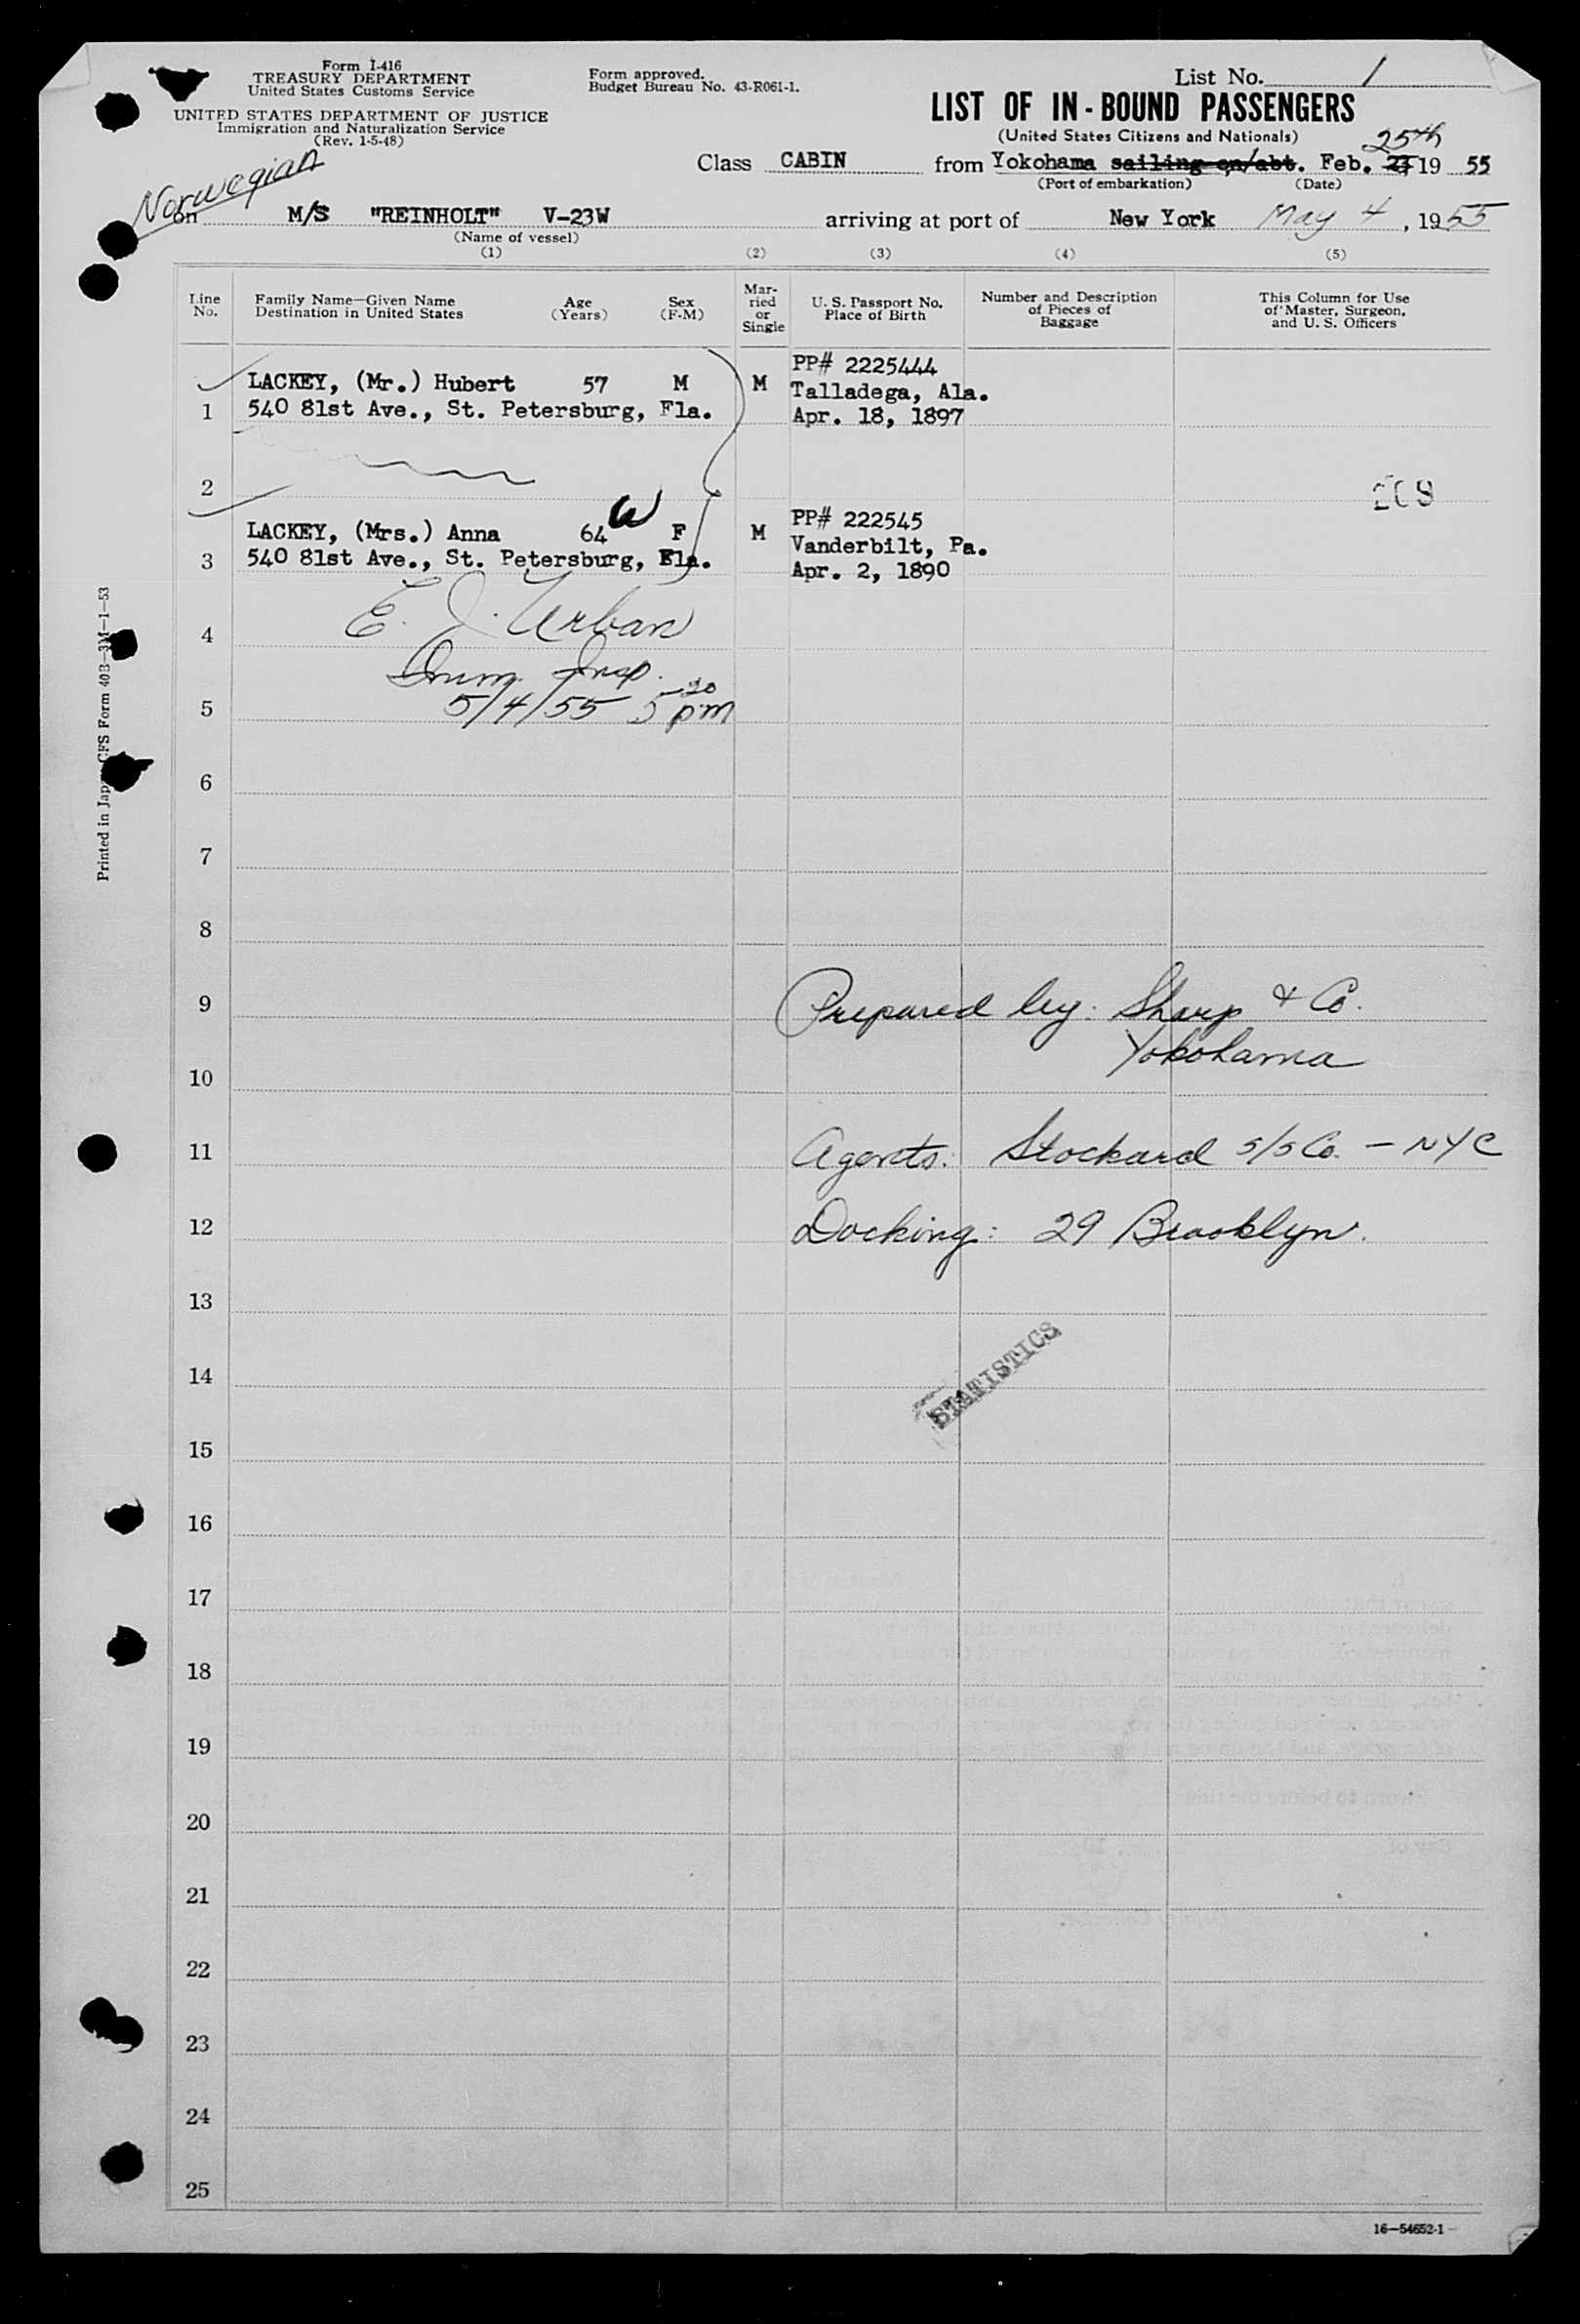 Form I-416
TREASURY DEPARTMENT
United States Customs Service
UNITED STATES DEPARTMENT OF JUSTICE
Immigration and Naturalization Service
(Rev. 1-5-48)
Form approved.
Budget Bureau No. 43-R061-1.
List No. 1
LIST OF IN-BOUND PASSENGERS
(United States Citizens and Nationals)
25th
Class CABIN from Yokohama sailing on/abt. Feb. 19 55
(Port of embarkation) (Date)
Norwegian
on M/S "REINHOLT" V-23W arriving at port of New York May 4, 1955
(Name of vessel)
(1) (2) (3) (4) (5)
Line No.
Family Name—Given Name
Destination in United States
Age (Years)
Sex (F-M)
Mar-
ried
or
Single
U. S. Passport No.
Place of Birth
Number and Description
of Pieces of
Baggage
This Column for Use
of Master, Surgeon,
and U. S. Officers
PP# 2225444
LACKEY, (Mr.) Hubert 57 M M Talladega, Ala.
1 540 81st Ave., St. Petersburg, Fla. Apr. 18, 1897
2
W
PP# 222545
LACKEY, (Mrs.) Anna 64 F M Vanderbilt, Pa.
3 540 81st Ave., St. Petersburg, Fla. Apr. 2, 1890
4 E. J. Urban
Imm. Insp.
5 5/4/55 5 20 pm
6
7
8
9 Prepared by: Sharp & Co.
Yokohama
10
11 Agents: Stockard S/S Co. — NYC
12 Docking: 29 Brooklyn.
13
14 STATISTICS
15
16
17
18
19
20
21
22
23
24
25
Printed in Japan CFS Form 40B—3M—1—53
16—54652-1